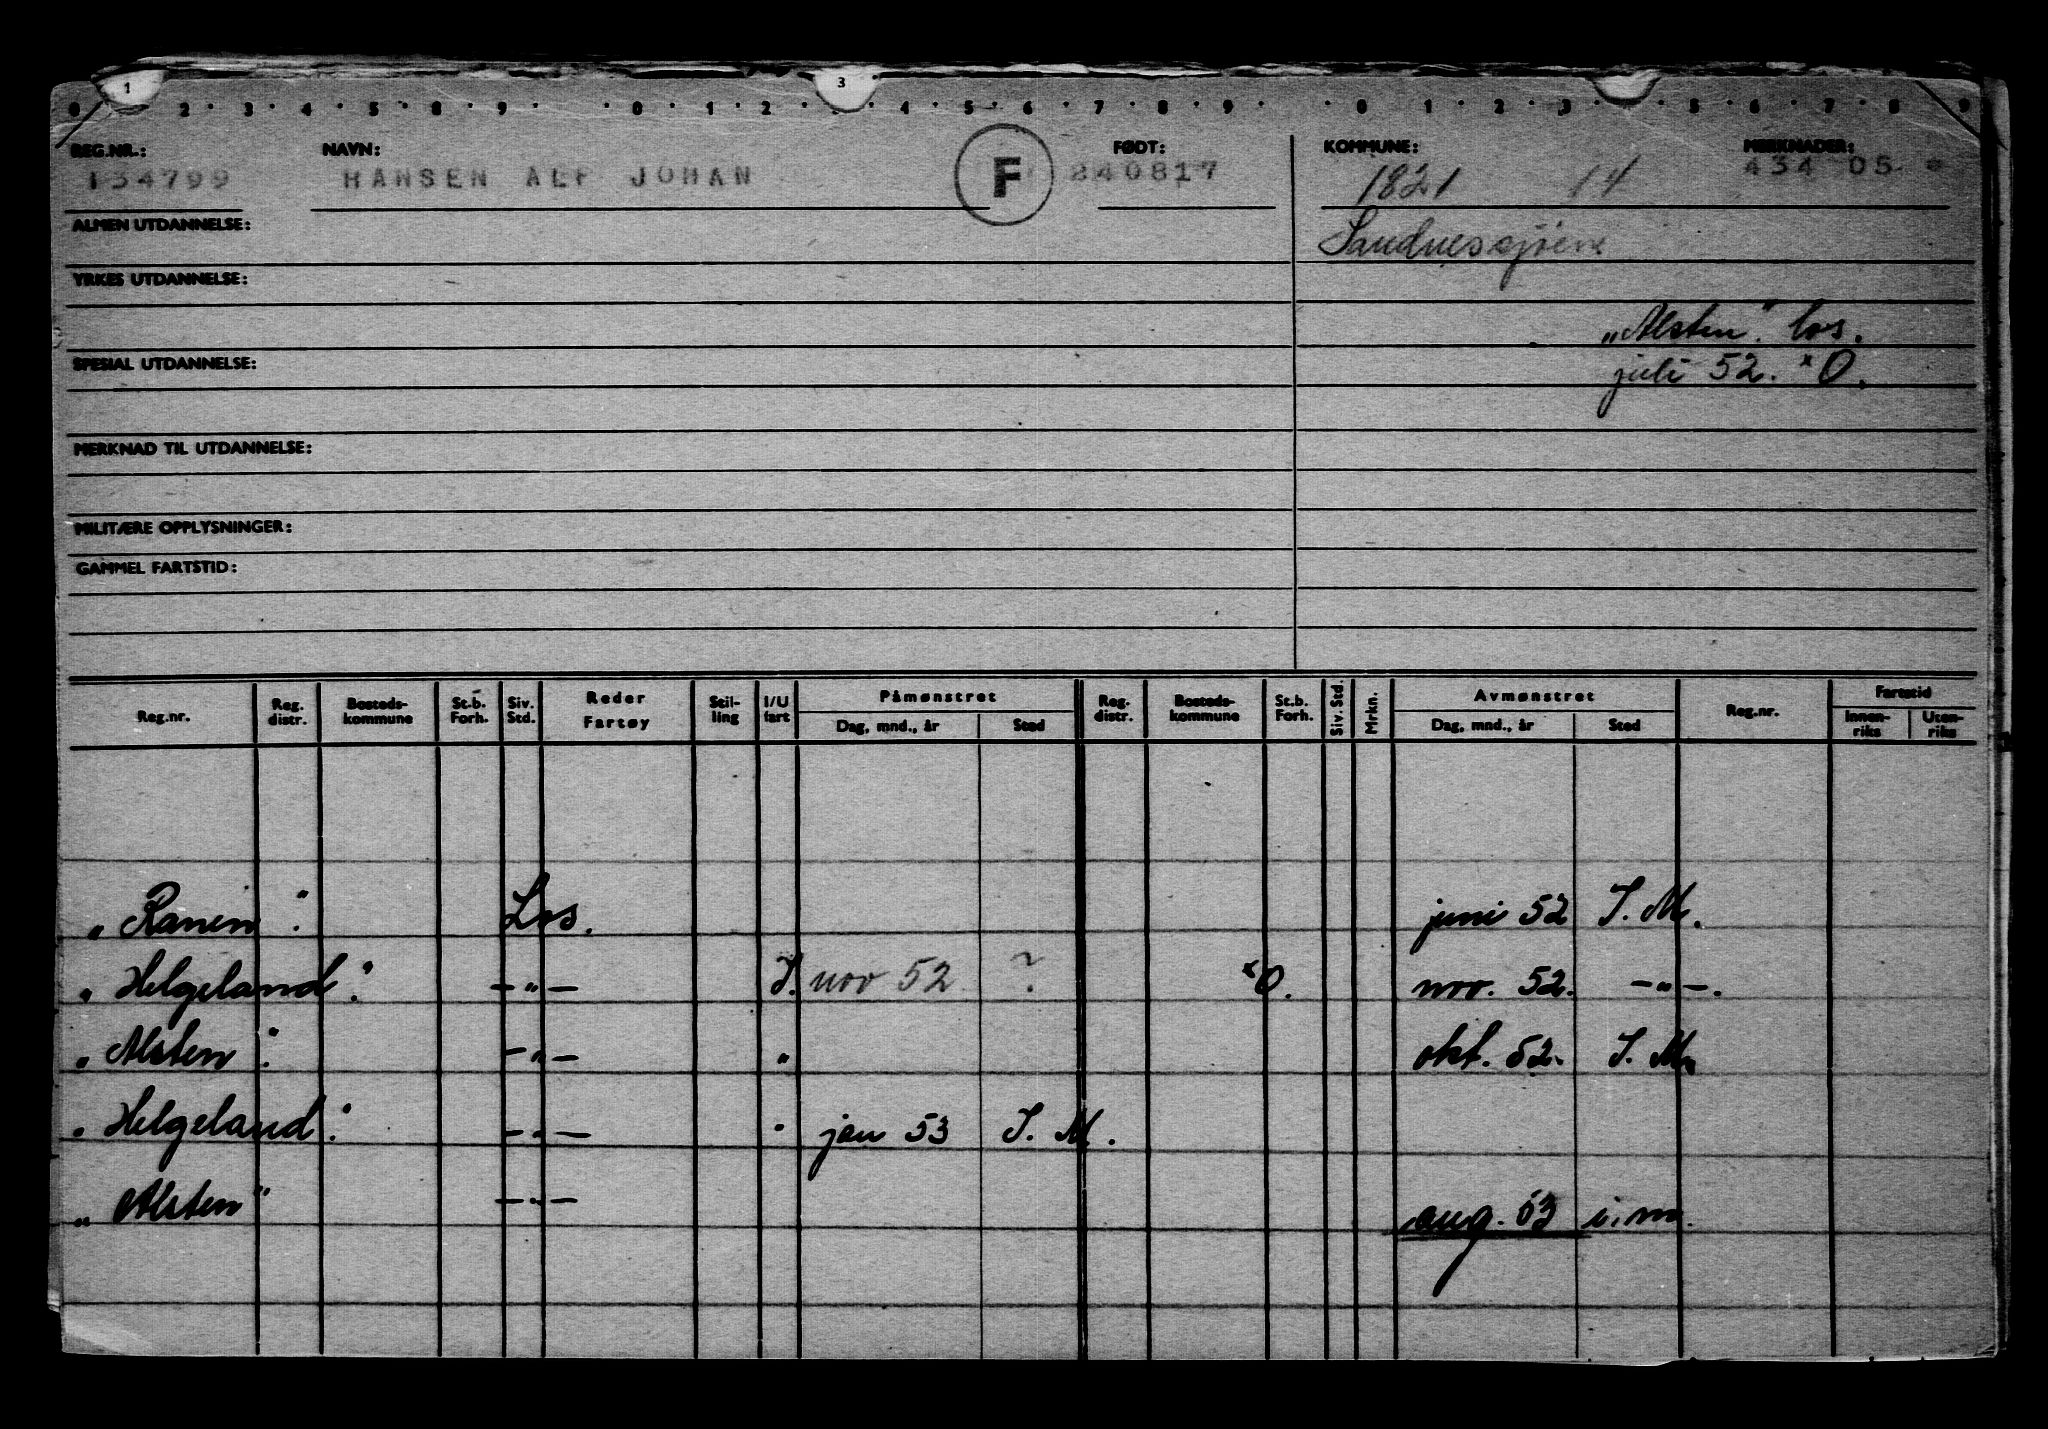 1 3
0 2 3 4 5 8 9 0 1 2 4 5 6 7 8 9 0 1 2 3 5 6 7 8 9
REG.NR.: NAVN: FØDT: KOMMUNE: MERKNADER:
134799 HANSEN ALF JOHAN F 240817 1821 14 434 05
ALMEN UTDANNELSE: Sandnessjøen
YRKES UTDANNELSE:
„Alsten". los.
SPESIAL UTDANNELSE: juli 52. *O.
MERKNAD TIL UTDANNELSE:
MILITÆRE OPPLYSNINGER:
GAMMEL FARTSTID:
Reg.nr. Reg. distr. Bosteds-kommune St.b. Forh. Siv. Std. Reder Fartøy Stil-ling I/U fart Påmønstret Dag, mnd., år Sted Reg. distr. Bosteds-kommune St.b. Forh. Siv. Std. Mrkn. Avmønstret Dag, mnd., år Sted Reg.nr. Fartstid Innen-riks Uten-riks
„Ranen". Los. juni 52 I. M.
„Helgeland". —"— I. nov 52 ? *O. nov. 52. —"—.
„Alsten". —"— " okt. 52. I. M.
„Helgeland". —"— " jan 53 I. M.
„Alsten" —"— aug. 53 i. m.